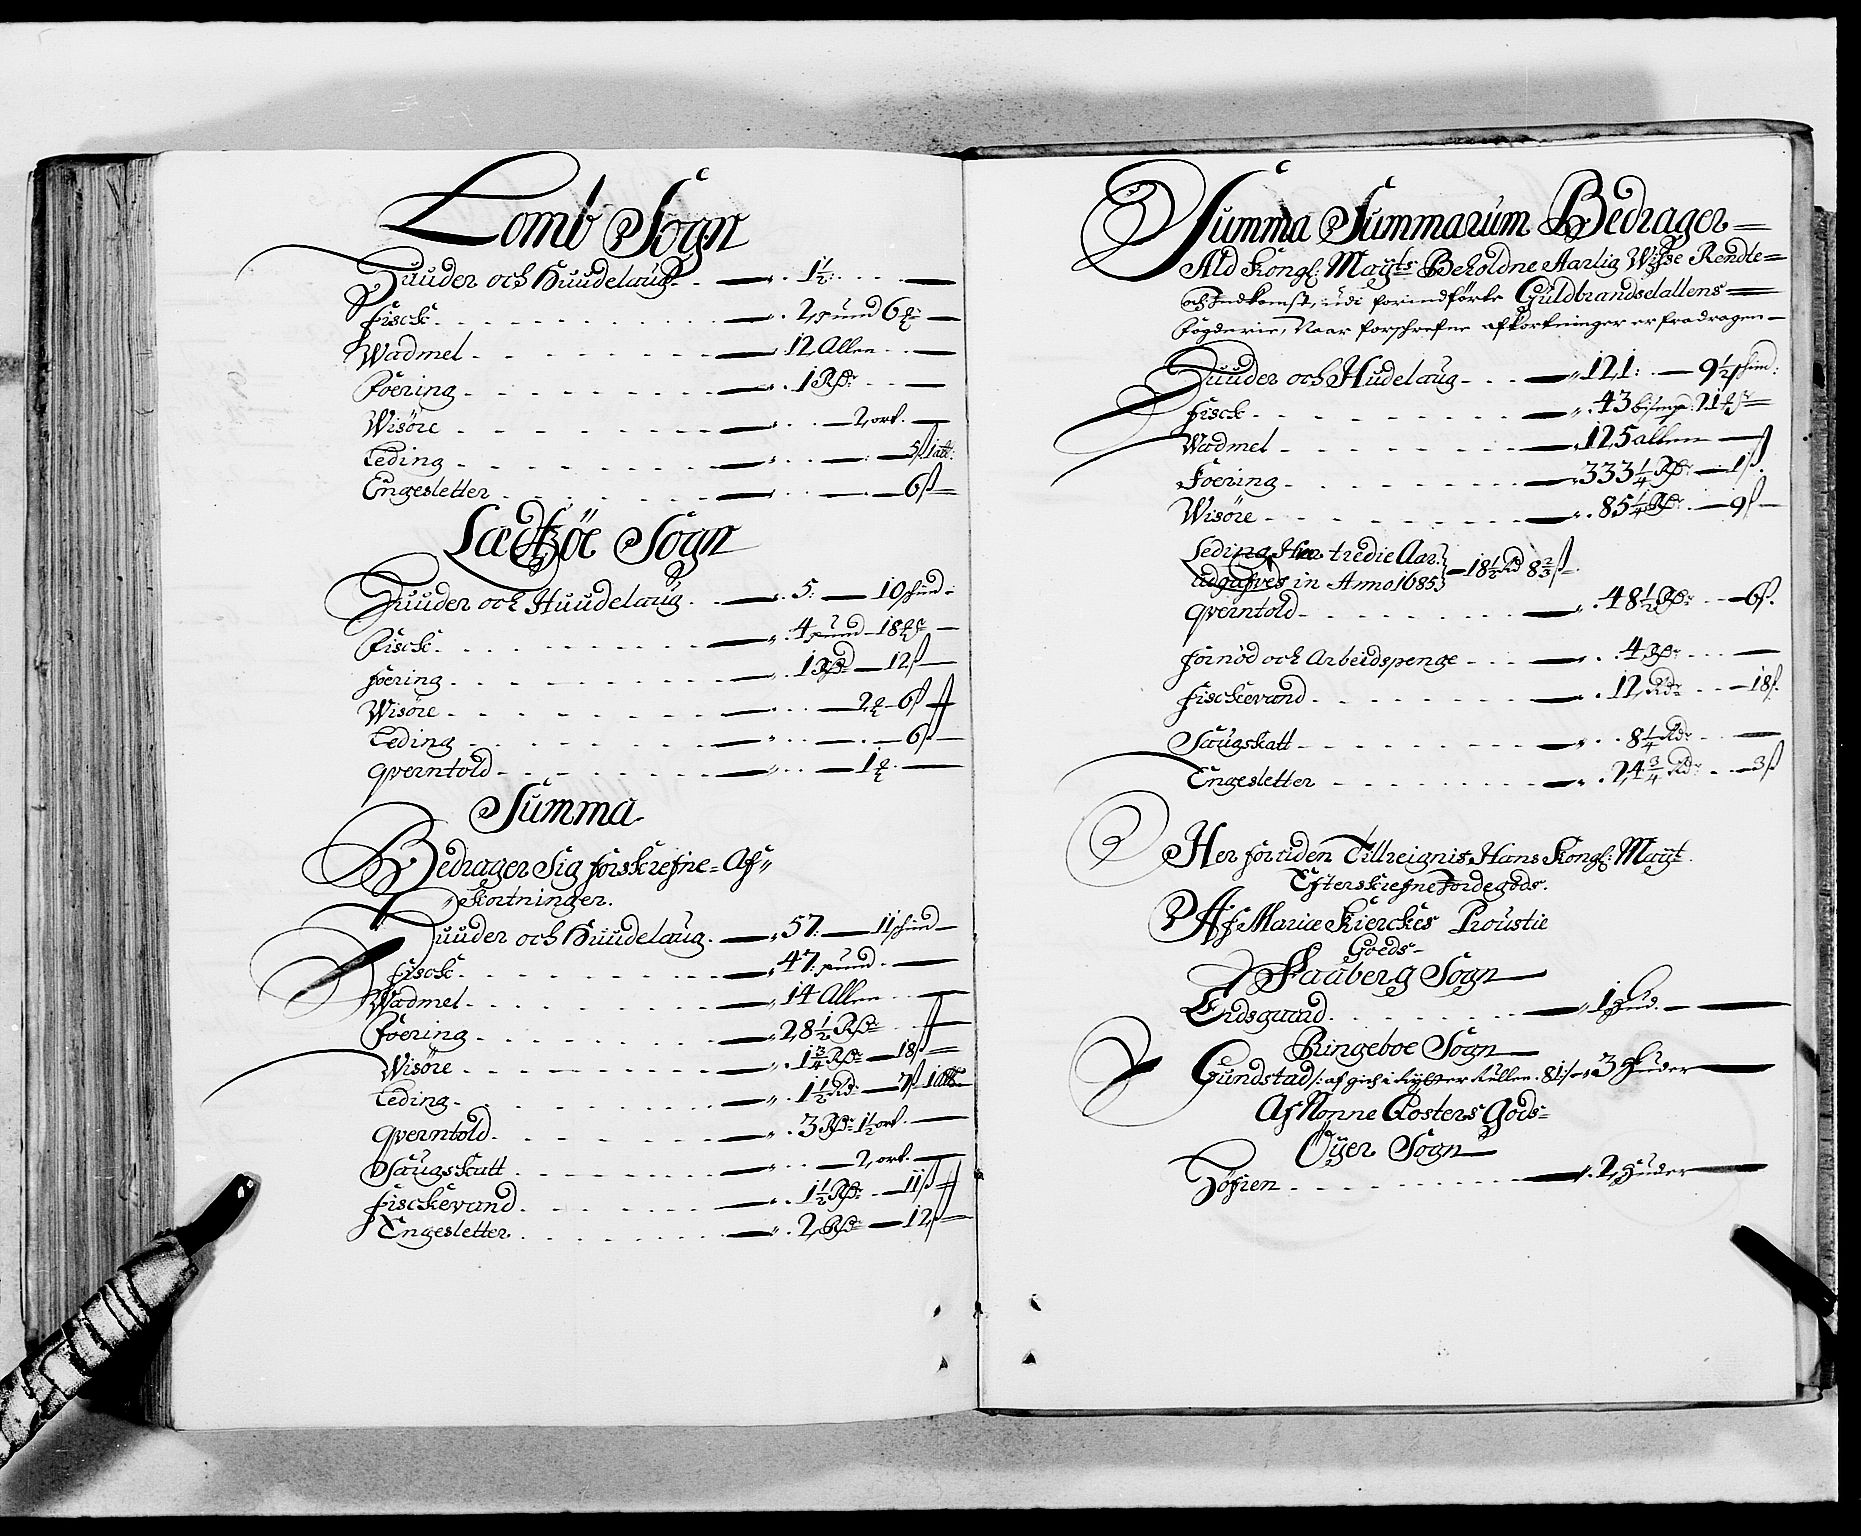 Lomb Sogn
Huuder och Huudelaug - 1½
fisck - 2 pund 6
Wadmel - 12 Allen
Foering - 1 Rdr
Wisöre - 2 ort
Leding - 5 ß 1 alb:
Engesletter - 6 ß
Sogn
Huuder och Huudelaug - 5: 10 skind
Fisck - 4 pund 18
foering - 1 Rdr 12 ß
Wisöre - 6 ß
Leding - 6 ß
qverntold - 1
Summa
Bedrager Sig forskrefne Af-
kortninger.
Huuder och Huudelaug - 57: 11 skind
fisck - 47 pund
Wadmel - 14 Allen
Foering - 28½ Rdr
Wisöre - 1¾ Rdr 18 ß
Leding - 1½ Rd 7 ß 1 alb
qverntold - 3 Rdr 1½ ort
Saugskatt - 2 ort
fisckevand - 1½ Rdr 11 ß
Engesletter - 2 Rdr 12 ß
Summa Summarum Bedrager
Ald Kongl: Mayts Beholdne Aarlig Wisse Rendte
och Indkomst, udi forindførte Guldbrandsdallens
fogderie, Naar forschrefne afkortninger er fradragen
Huuder och Hudelaug - 121: 9½ skind:
fisck - 43 bismpd: 21
Wadmel - 125 allen
Foering - 333¼ Rdr 1 ß.
Wisöre - 85¼ Rdr 9 ß
Leding Hver tredie Aar
udgifves in Anno 1685 - 18½ Rd 8⅔ ß
qverntold - 48½ Rdr 6 ß.
fornöd och Arbeidspenge - 4 Rdr
fisckevand - 12 Rdr 18 ß.
Saugskatt - 8¼ Rdr
Engesletter - 24¾ Rdr 3 ß
Her foruden Tillreignis Hans Kongl: Mayt
Efterskrefne Jordegods.
Af Marie Kierckes Proustie
Goeds
Faaberg Sogn
Eidsgaard - 1 Hud.
Ringeboe Sogn
Gundstad /: af gich i Rytter 81 :/ 3 Huder
Af Nonne Closters Gods
Öyer Sogn
- 2 Huder